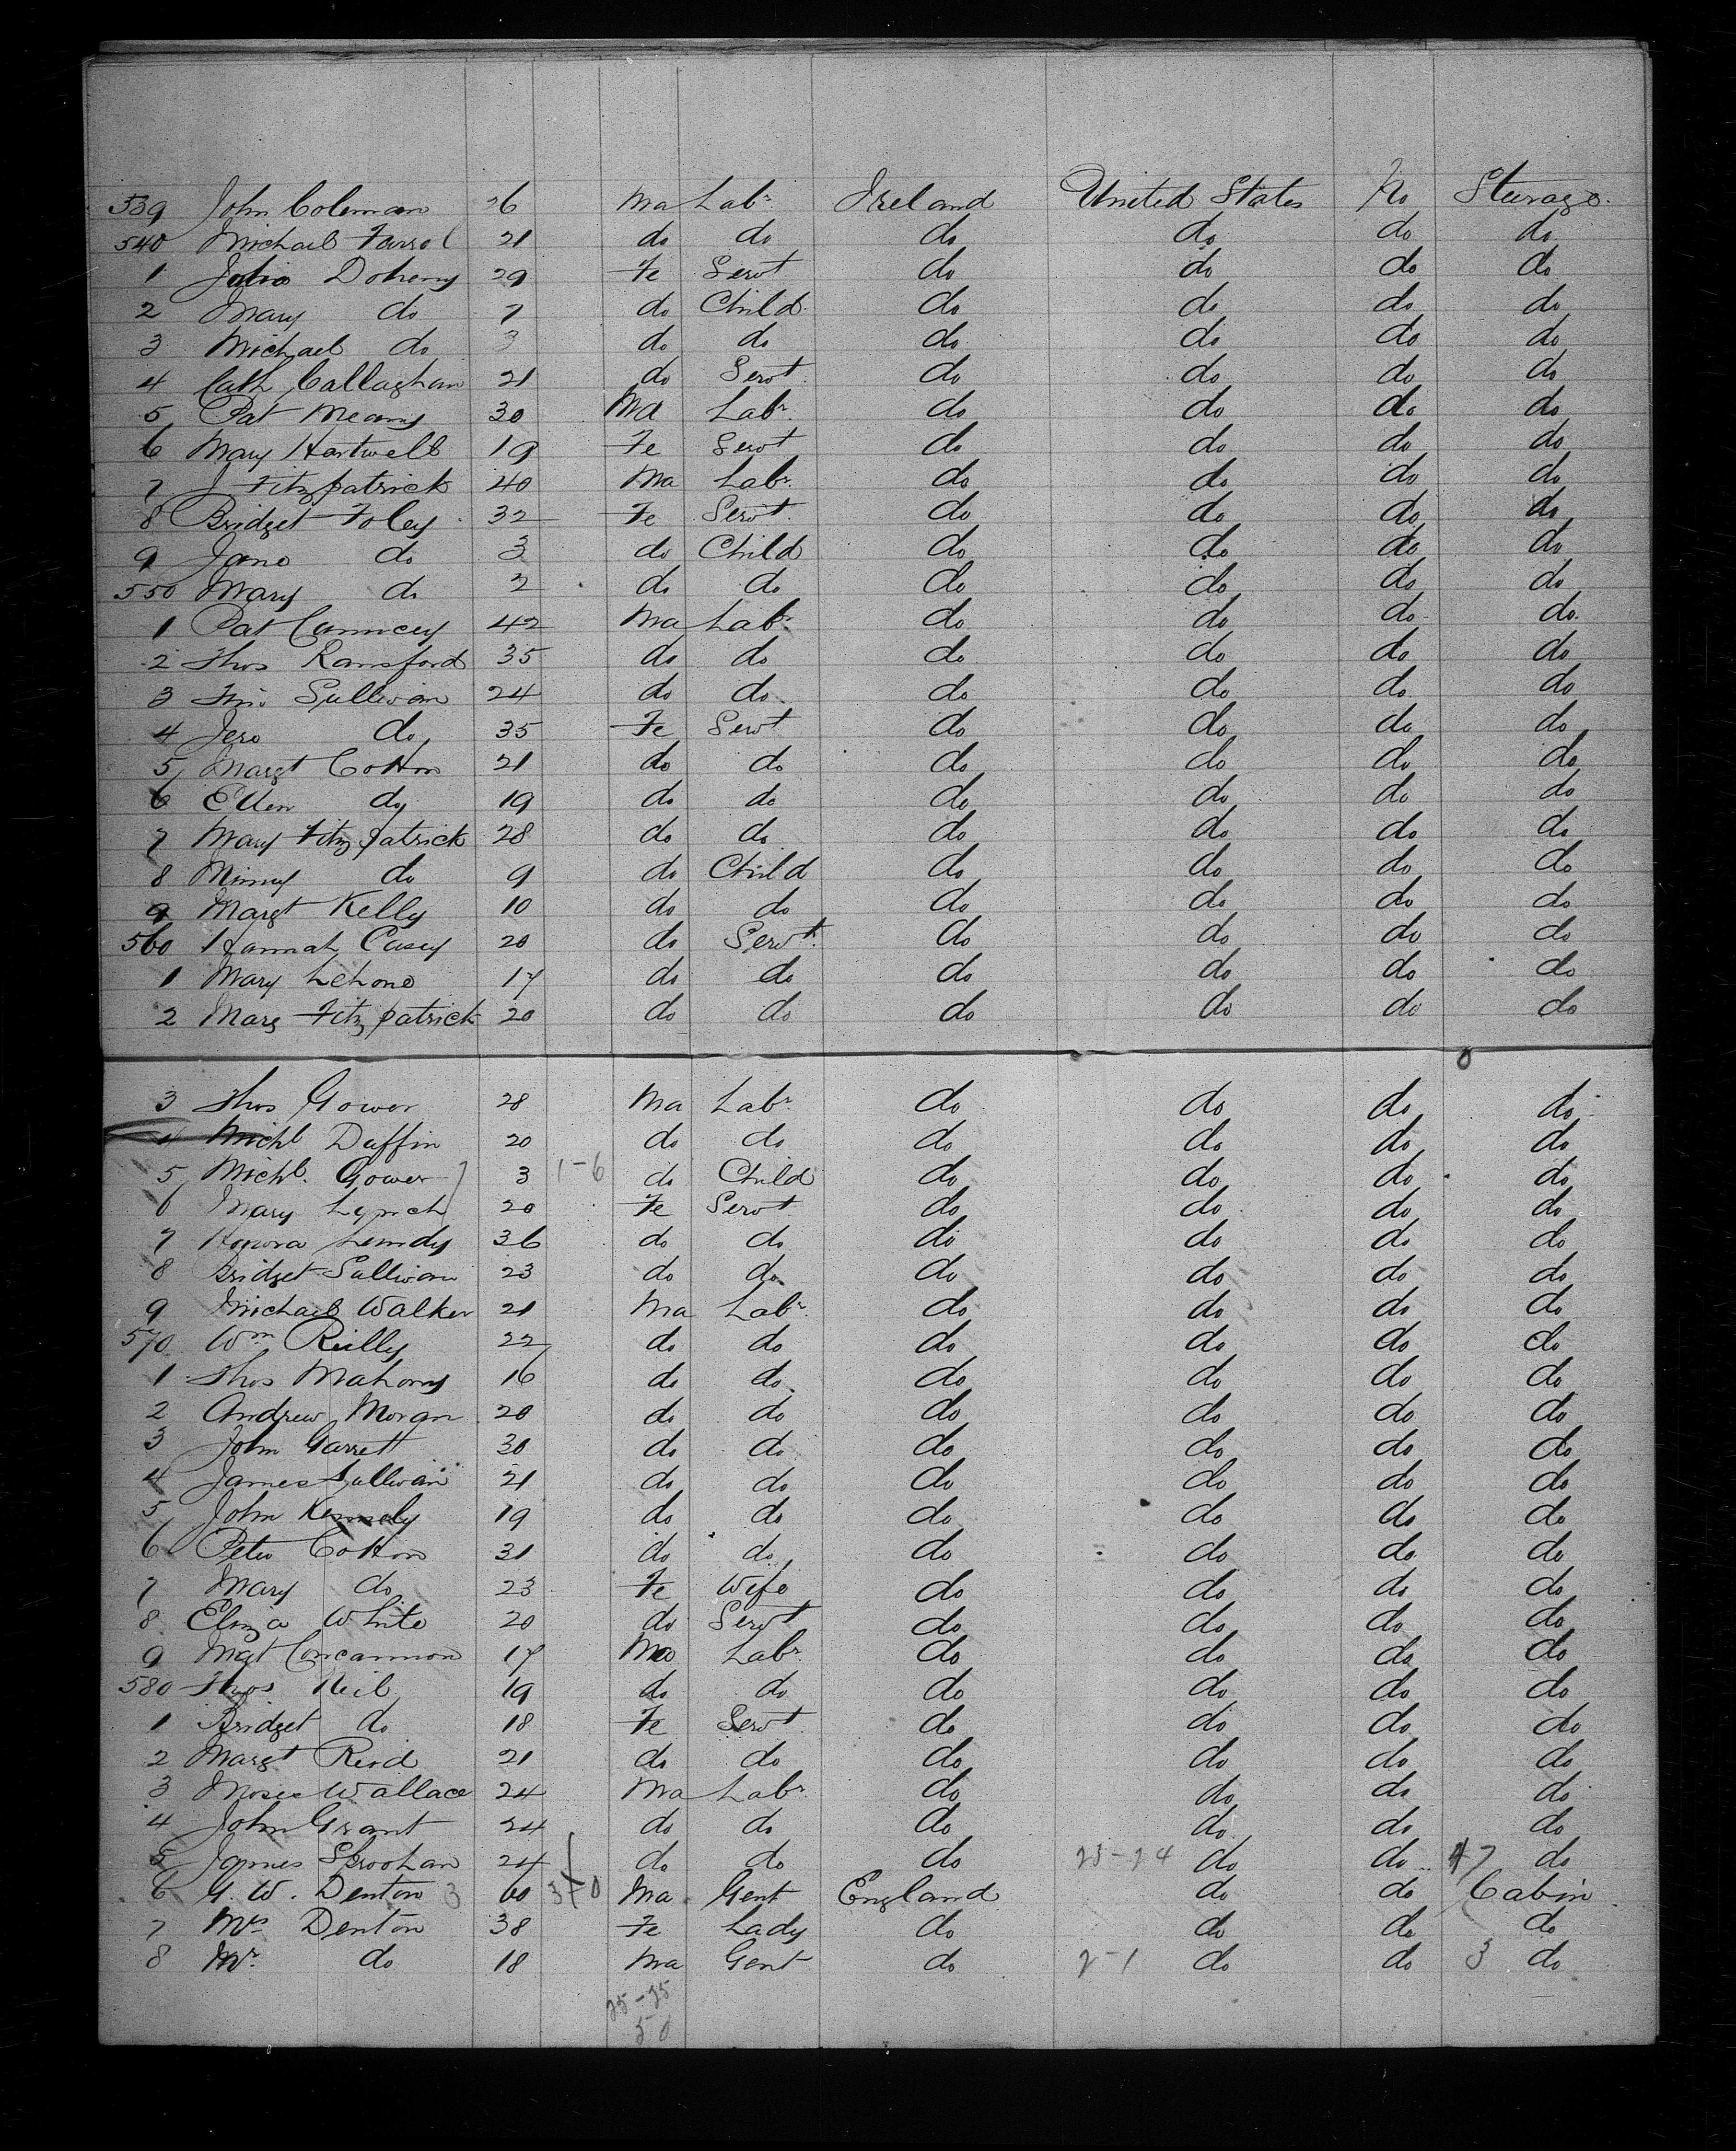 539 John Coleman 26 Ma Labr Ireland United States No Steerage
540 Michael Farrol 21 do do do do do do
1 Julia Doheny 29 Fe Servt do do do do
2 Mary do 7 do Child do do do do
3 Michael do 3 do do do do do do
4 Cath Callaghan 21 do Servt do do do do
5 Pat Meany 30 Ma Labr do do do do
6 Mary Hartwell 19 Fe Servt do do do do
7 J Fitzpatrick 40 Ma Labr do do do do
8 Bridget Foley 32 Fe Servt do do do do
9 Jane do 3 do Child do do do do
550 Mary do 2 do do do do do do
1 Pat 42 Ma Labr do do do do
2 Thos Ransford 35 do do do do do do
3 Sullivan 24 do do do do do do
4 do 35 Fe Servt do do do do
5 Margt Cotton 21 do do do do do do
6 Ellen do 19 do do do do do do
7 Mary Fitzpatrick 28 do do do do do do
8 Minny do 9 do Child do do do do
9 Margt Kelly 10 do do do do do do
560 Hannah Casey 20 do Servt do do do do
1 Mary Lehane 17 do do do do do do
2 Marg Fitzpatrick 20 do do do do do do
3 Thos Gower 28 Ma Labr do do do do
4 Michl Duffin 20 do do do do do do
5 Michl. Gower 3 1-6 do Child do do do do
6 Mary Lynch 20 Fe Servt do do do do
7 Honora 36 do do do do do do
8 Bridget Sullivan 23 do do do do do do
9 Michael Walker 21 Ma Labr do do do do
570 Wm Reilly 22 do do do do do do
1 Thos Mahony 16 do do do do do do
2 Andrew Moran 20 do do do do do do
3 John Garrett 30 do do do do do do
4 James Sullivan 21 do do do do do do
5 John Kennedy 19 do do do do do do
6 Peter Cotton 31 do do do do do do
7 Mary do 23 Fe Wife do do do do
8 Eliza White 20 do Servt do do do do
9 Mgt Concannon 17 Ma Labr do do do do
580 Thos Neil 19 do do do do do do
1 Bridget do 18 Fe Servt do do do do
2 Margt Reid 21 do do do do do do
3 Moses Wallace 24 Ma Labr do do do do
4 John Grant 24 do do do do do do
5 James Sproohan 24 do do do 25-24 do do 47 do
6 G. W. Denton 3 60 3-0 Ma Gent England do do Cabin
7 Mrs Denton 38 Fe Lady do do do do
8 Mr. do 18 Ma Gent do 2-1 do do 3 do
25-25
50